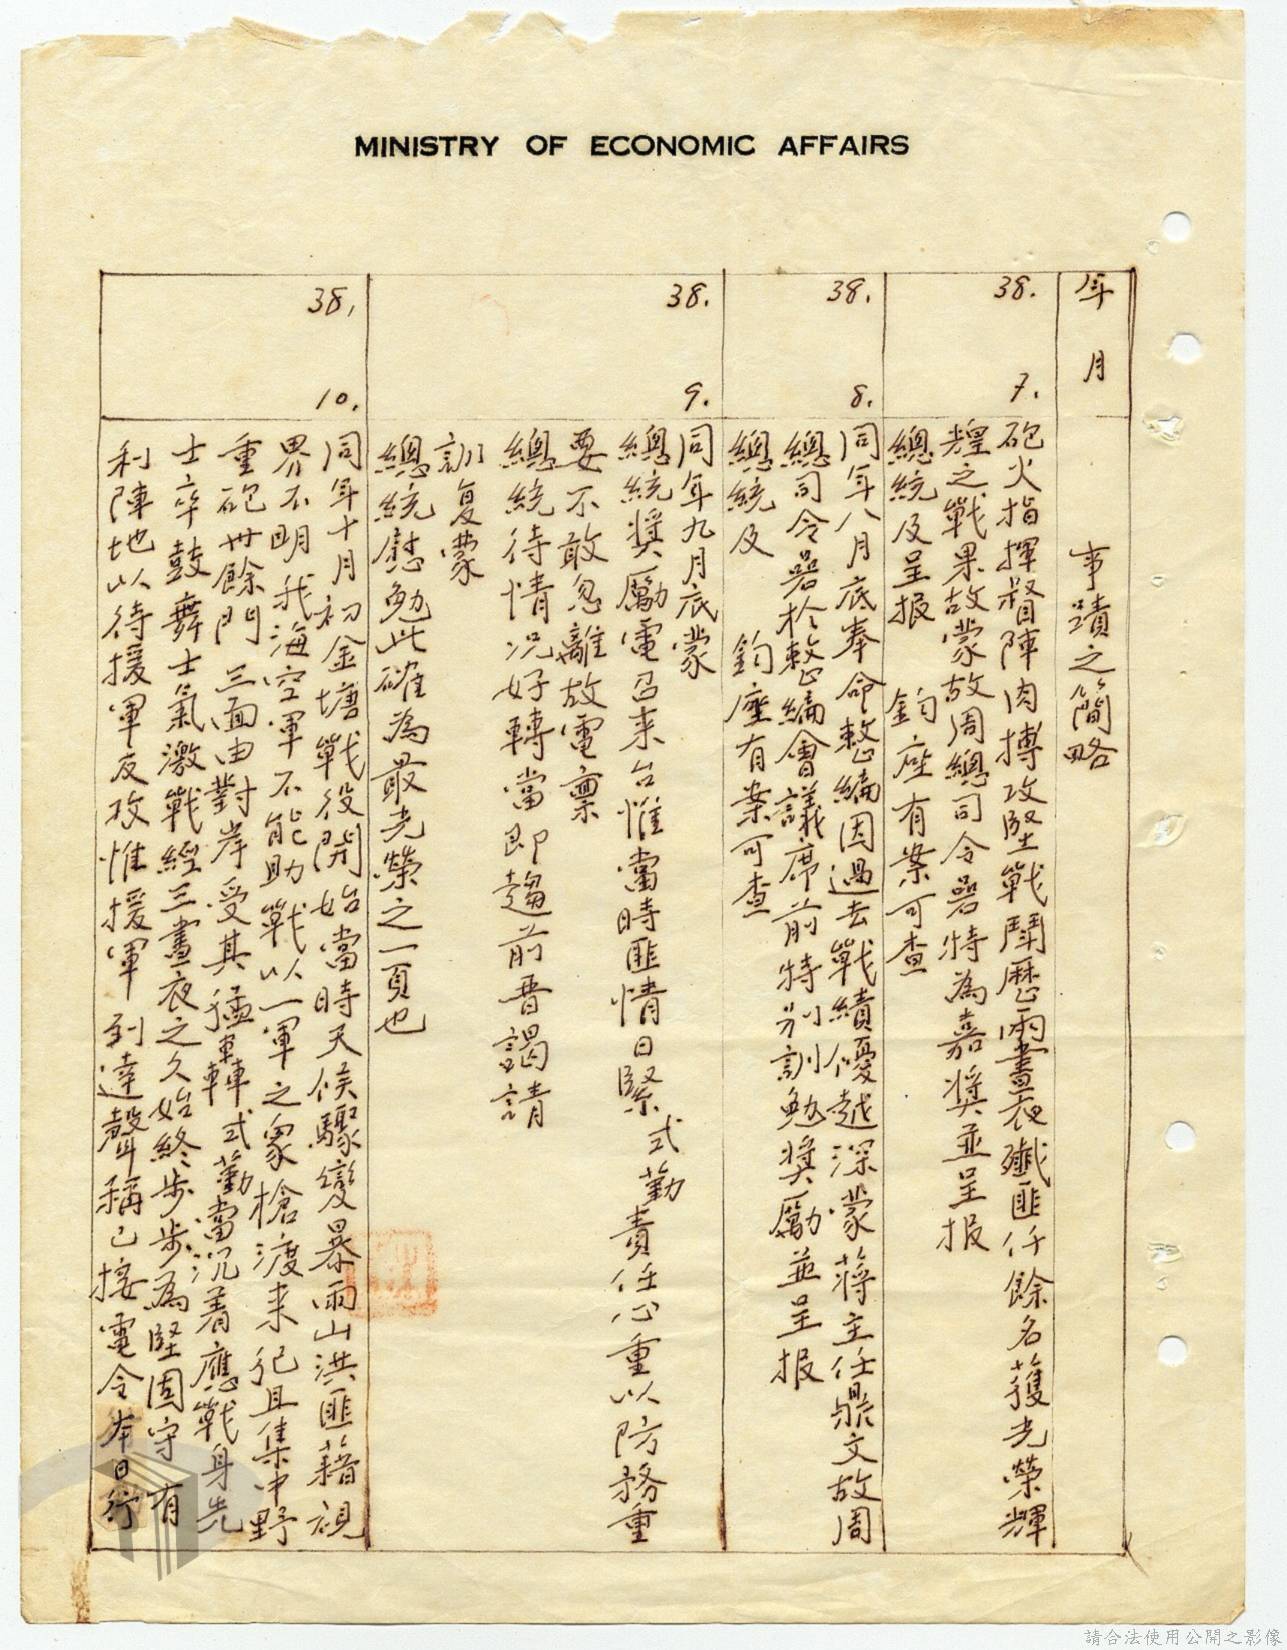 MINISTRY OF ECONOMIC AFFAIRS
年月
事蹟之簡略
38. 7.
砲火指揮督陣肉搏攻堅戰鬥歷兩晝夜殲匪仟餘名獲光榮輝
煌之戰果故蒙故周總司令嵒特為嘉獎並呈报
總統及呈报 鈞座有案可查
38. 8.
同年八月底奉命整編因過去戰績優越深蒙蔣主任鼎文故周
總司令嵒於整編會議席前特別訓勉獎勵並呈报
總統及 鈞座有案可查
38. 9.
同年九月底蒙
總統獎勵電召来台惟當時匪情日緊式勤責任心重以防務重
要不敢忽離故電稟
總統待情况好轉當即趨前晋謁請
訓复蒙
總統慰勉此確為最光榮之一頁也
38. 10.
同年十月初金塘戰役開始當時天候驟變暴雨山洪匪藉視
界不明我海空軍不能助戰以一軍之眾槍渡来犯且集中野
重砲卅餘門三面由對岸受其猛轟式勤當沉着應戰身先
士卒鼓舞士氣激戰經三晝夜之久始終步步為堅固守有
利陣地以待援軍反攻惟援軍到達聲稱已接電令本日行
請合法使用公開之影像